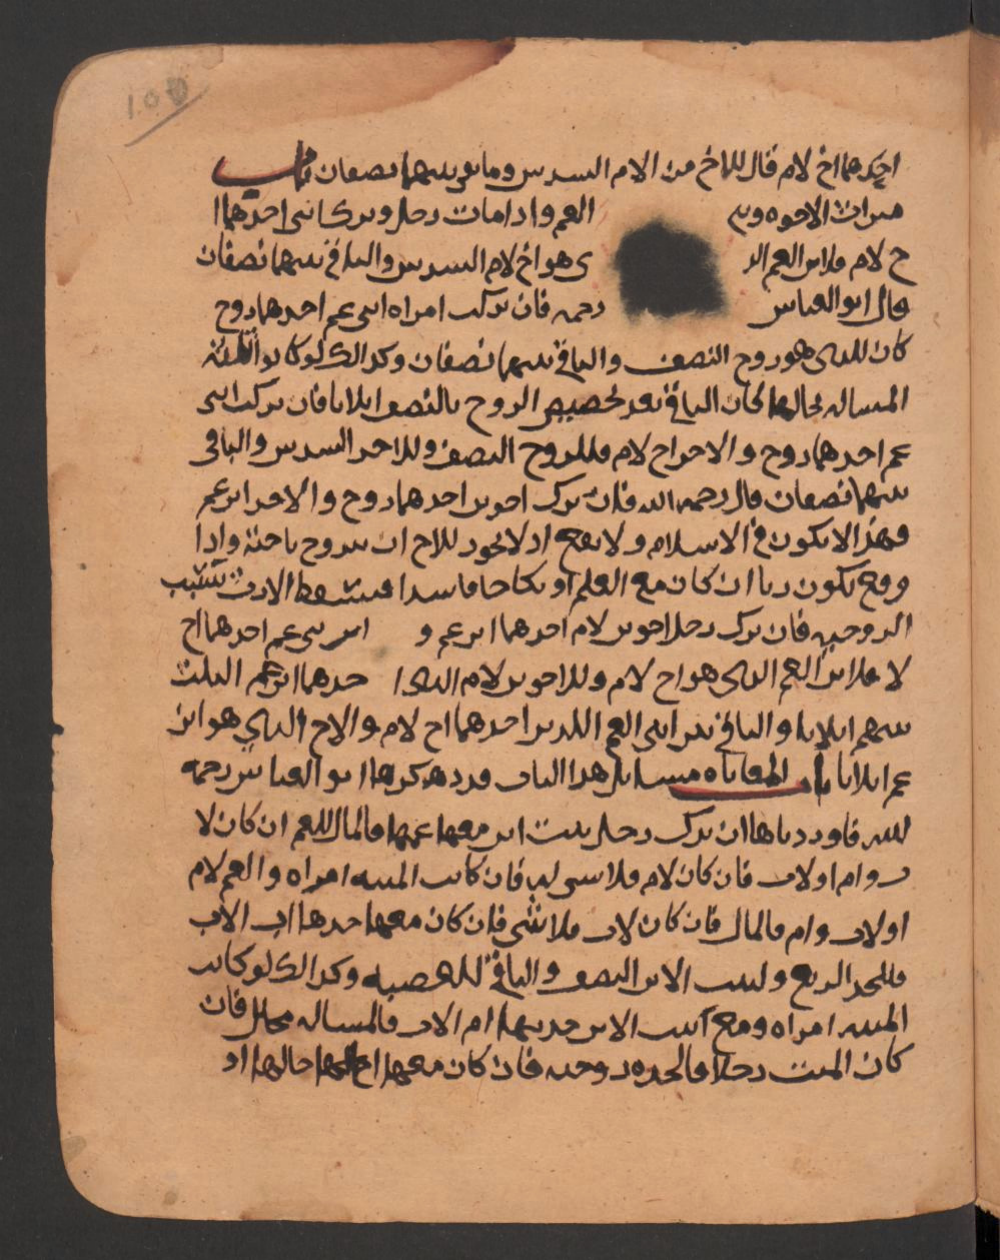 احدهما اخ لام قال للاخ من الام السدس وما بقي بينهما نصفان باب
ميراث الاخوه وبني العم واذا مات رجل وترك ابني احدهما ا
خ لام فلابن العم الذي هو اخ لام السدس والباقي بينهما نصفان
قال ابو العباس رحمه فان تركت امراه ابني عم احدهما زوج
كان للذي هو زوج النصف والباقي بينهما نصفان وكذلك لو كانوا ثلثة
المساله بحالها لكان الباقي بعد تخصيص الزوج بالنصف اثلاثا فان تركت ابني
عم احدهما زوج والاخر اخ لام فللزوج النصف وللاخر السدس والباقي
بينهما نصفان قال رحمه الله فان ترك اخوين احدهما زوج والاخر ابن عم
فهذا لا يكون في الاسلام ولا يقع اذ لا يجوز للاخ ان يتزوج باخته واذا
وقع يكون زنا ان كان مع العلم او نكاحا فاسدا فيسقط الارث بسبب
الزوجيه فان ترك رجل اخوين لام احدهما ابن عم و ابن بني عم احدهما اخ
لا فلابن العم الذي هو اخ لام وللاخوين لام الذي ا حدهما ابن عم الثلث
بينهم اثلاثا والباقي بين ابني العم اللذين احدهما اخ لام والاخ الذي هو ابن
عم اثلاثا باب المعاياه مسايل هذا الباب قد ذكرها ابو العباس رحمه
الله فاوردناها ان ترك رجل بنت ابن معها عمها فالمال للعم ان كان لا
ب وام او لاب فان كان لام فلا شي له فان كانت الميته امراه والعم لام
او لاب وام فالمال فان كان لاب فلا شي فان كان معها جدها اب الاب
فللجد الربع ولبنت الابن النصف والباقي للعصبه وكذلك لو كانت
الميته امراه ومع بنت الابن جدتها ام الاب فالمساله بحالها فان
كان الميت رجلا فالجده زوجته فان كان معها اخ لها خالها او